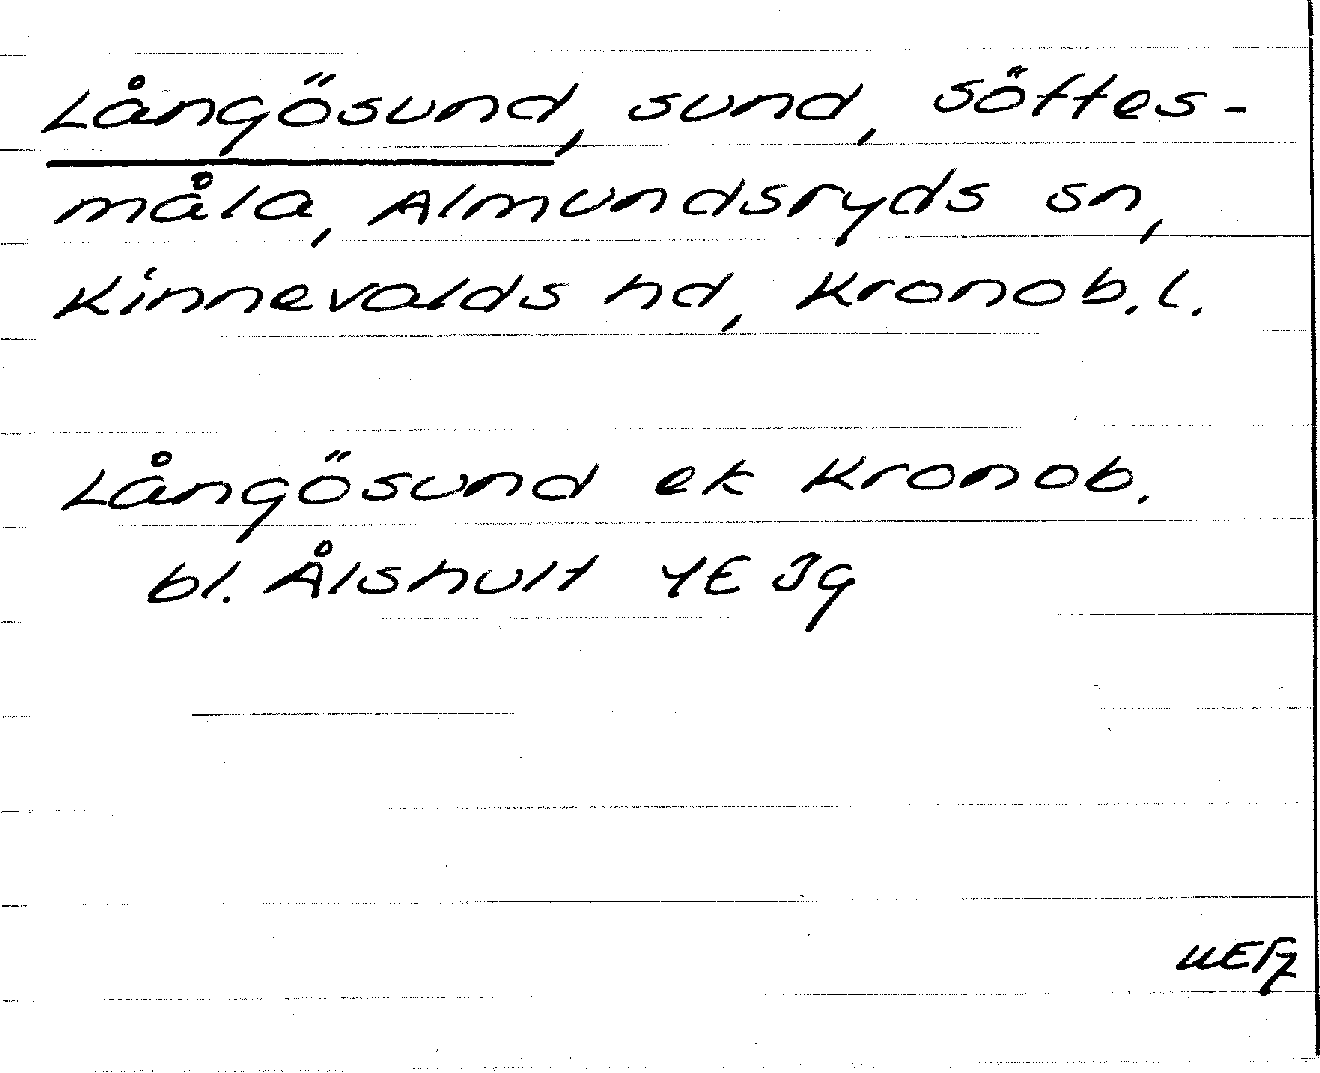 Långösund, sund, Söftes-
måla, Almundsryds sn,
Kinnevalds hd, Kronob. l.
Långösund ek Kronob.
bl. Ålshult 4E 3g